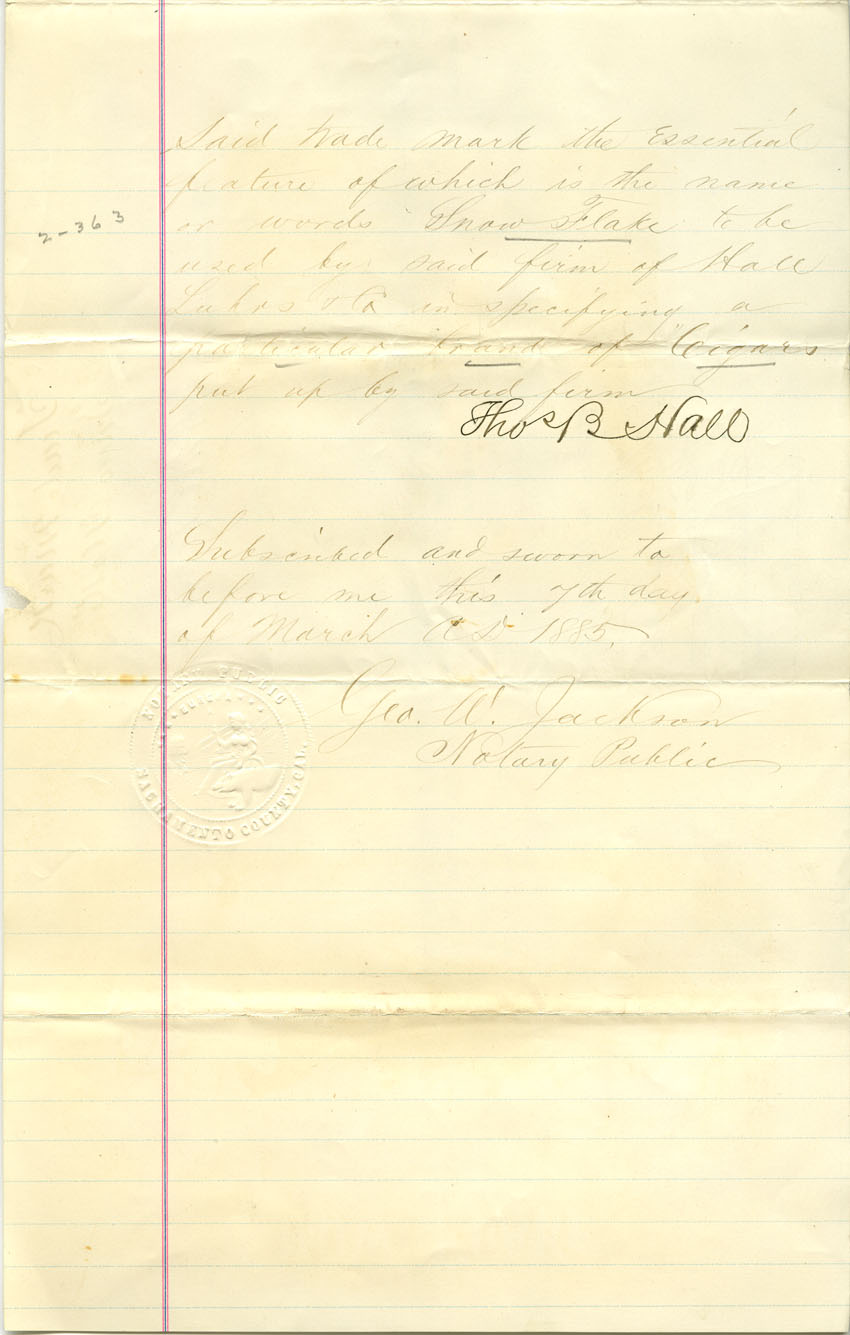 Said trade mark the Essential
feature of which is the name
or words "Snow Flake to be
used by said firm of Hall
Luhrs & Co in specifying a
particular brand of "Cigars
put up by said firm
Thos B Hall
2-363
Subscribed and sworn to
before me this 7th day
of March A.D. 1885.
Geo. A. Jackson
Notary Public
NOTARY PUBLIC
SACRAMENTO COUNTY, CAL.